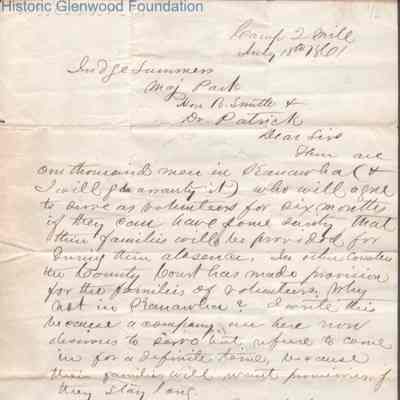 Historic Glenwood Foundation
Camp 2 Mile
July 18th 1861
Judge Summers
Maj Park
Hon B. Smith &
Dr. Patrick
Dear Sirs
There are
one thousand men in Kanawha (&
I will guarranty it) who will agree
to serve as volunteers for six months
if they can have some surety that
their families will be provided for
during their absence. In other Counties
the County Court has made provision
for the families of volunteers, Why
not in Kanawha? I write this
because a company are here now
desirous to serve but refuse to come
in for a definite time, because
their families will want provisions if
they stay long.